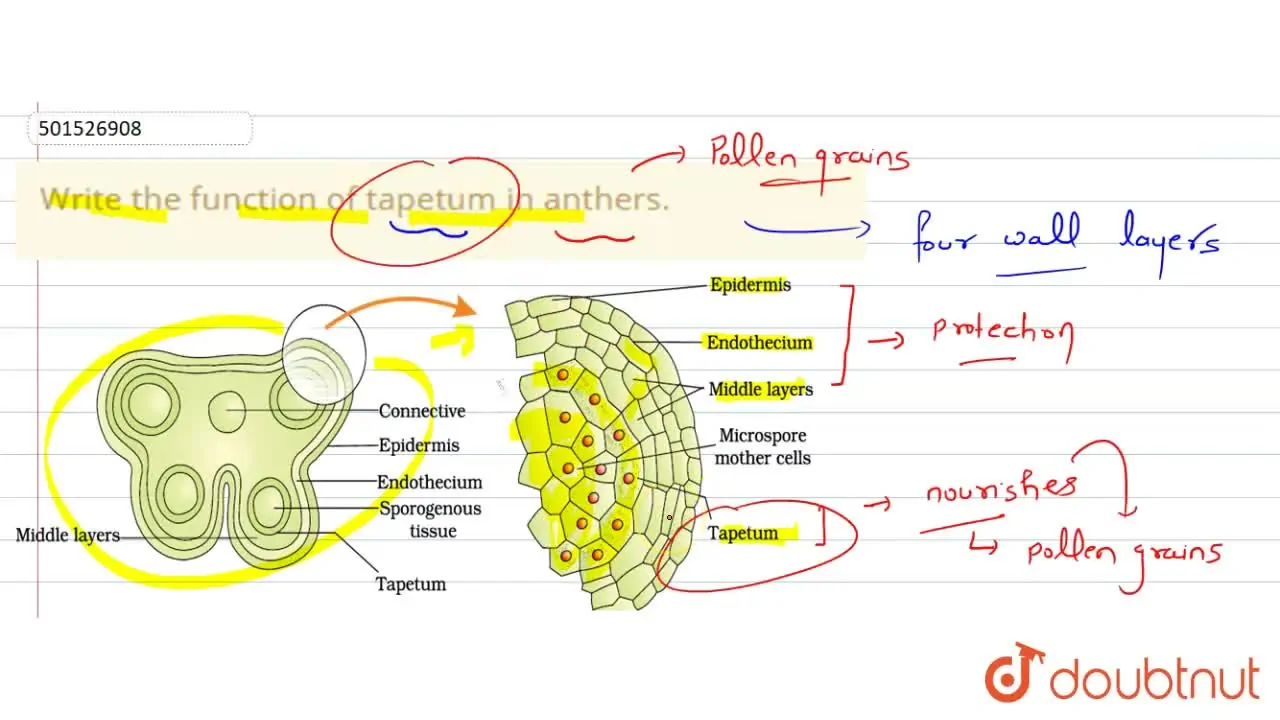 501526908
Pollen grains
Write the function of tapetum in anthers.
four wall layers
Epidermis
Endothecium
protection
Middle layers
Connective
Microspore
mother cells
Epidermis
Endothecium
nourishes
Sporogenous
tissue
Middle layers
Tapetum
pollen grains
Tapetum
doubtnut